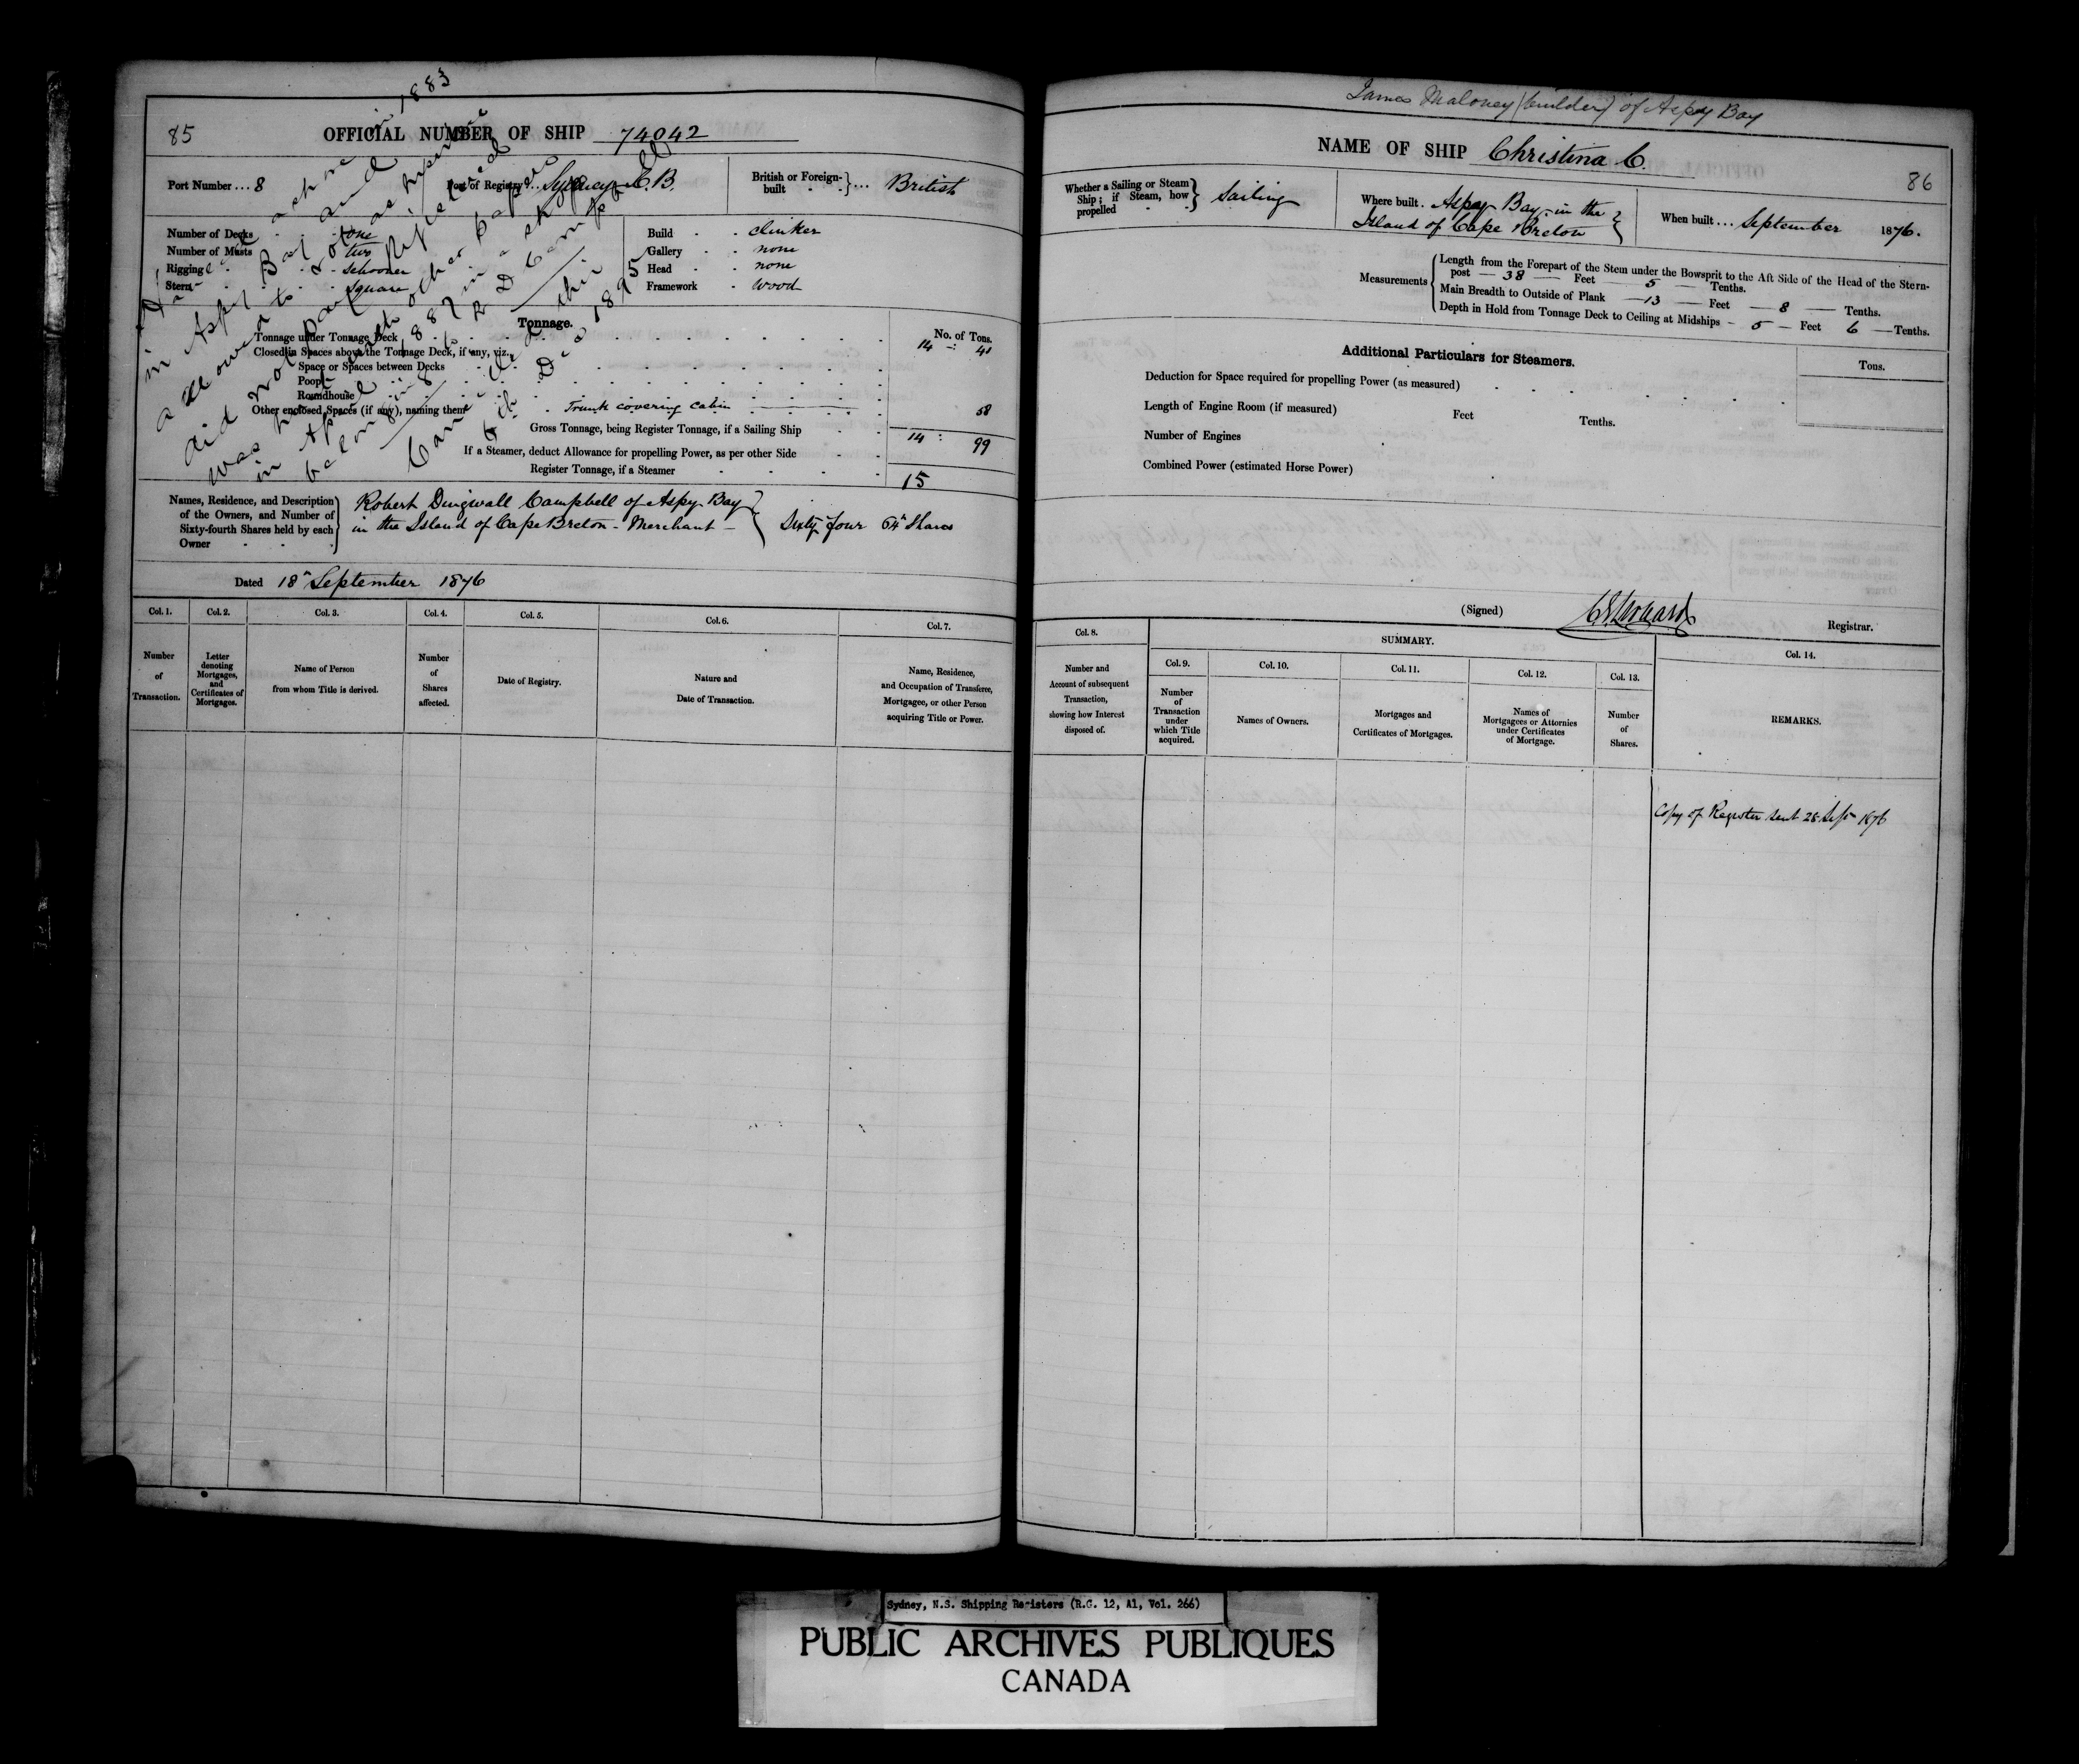 85
OFFICIAL NUMBER OF SHIP 74042
Port Number ... 8
Port of Registry ... Sydney C.B.
British or Foreign-built } ... British
Number of Decks one
Number of Masts two
Rigging Schooner
Stern Square
Build clinker
Gallery none
Head none
Framework Wood
Tonnage.
No. of Tons.
Tonnage under Tonnage Deck 14 41
Closed in Spaces above the Tonnage Deck, if any, viz.
Space or Spaces between Decks
Poop
Roundhouse
Other enclosed Spaces (if any), naming them Trunk covering cabin 58
Gross Tonnage, being Register Tonnage, if a Sailing Ship 14 : 99
If a Steamer, deduct Allowance for propelling Power, as per other Side
Register Tonnage, if a Steamer
15
in 1883
in Aspy Bay and
allowed to
did not
was
in April 1887 in a
belonging to R D Campbell
Names, Residence, and Description of the Owners, and Number of Sixty-fourth Shares held by each Owner
Robert Dingwall Campbell of Aspy Bay
in the Island of Cape Breton - Merchant - } Sixty four 64th Shares
Dated 18th September 1876
Col. 1. Col. 2. Col. 3. Col. 4. Col. 5. Col. 6. Col. 7.
Number of Transaction.
Letter denoting Mortgages, and Certificates of Mortgages.
Name of Person from whom Title is derived.
Number of Shares affected.
Date of Registry.
Nature and Date of Transaction.
Name, Residence, and Occupation of Transferee, Mortgagee, or other Person acquiring Title or Power.
James Maloney (builder) of Aspy Bay
NAME OF SHIP Christina C.
86
Whether a Sailing or Steam Ship; if Steam, how propelled } Sailing
Where built . Aspy Bay in the
Island of Cape Breton }
When built ... September 1876.
Measurements
Length from the Forepart of the Stem under the Bowsprit to the Aft Side of the Head of the Stern-
post — 38 — Feet — 5 — Tenths.
Main Breadth to Outside of Plank — 13 — Feet — 8 — Tenths.
Depth in Hold from Tonnage Deck to Ceiling at Midships — 5 — Feet 6 — Tenths.
Additional Particulars for Steamers.
Tons.
Deduction for Space required for propelling Power (as measured)
Length of Engine Room (if measured) Feet Tenths.
Number of Engines
Combined Power (estimated Horse Power)
(Signed) Registrar.
Col. 8.
SUMMARY.
Col. 9. Col. 10. Col. 11. Col. 12. Col. 13. Col. 14.
Number and Account of subsequent Transaction, showing how Interest disposed of.
Number of Transaction under which Title acquired.
Names of Owners.
Mortgages and Certificates of Mortgages.
Names of Mortgagees or Attornies under Certificates of Mortgage.
Number of Shares.
REMARKS.
Copy of Register sent 28 Sepr 1876
Sydney, N.S. Shipping Registers (R.G. 12, A1, Vol. 266)
PUBLIC ARCHIVES PUBLIQUES
CANADA